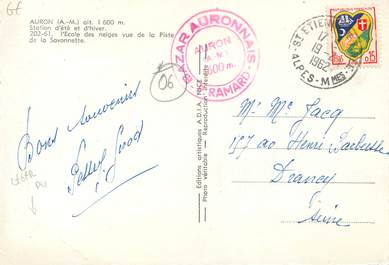 AURON (A.-M.) alt. 1 600 m.
Station d'été et d'hiver.
202-61. l'Ecole des neiges vue de la Piste
de la Savonnette.
06
BAZAR AURONNAIS
AURON
(A.-M.)
1600 m.
RAMARD
ST ETIENNE
17
19
1962
ALPES-MMES
0,15
Bons souvenirs
Editions artistiques A.D.I.A. NICE
Photo véritable - Reproduction interdite
Mr Mc Jacq
197 av Henri Barbusse
Drancy
Seine